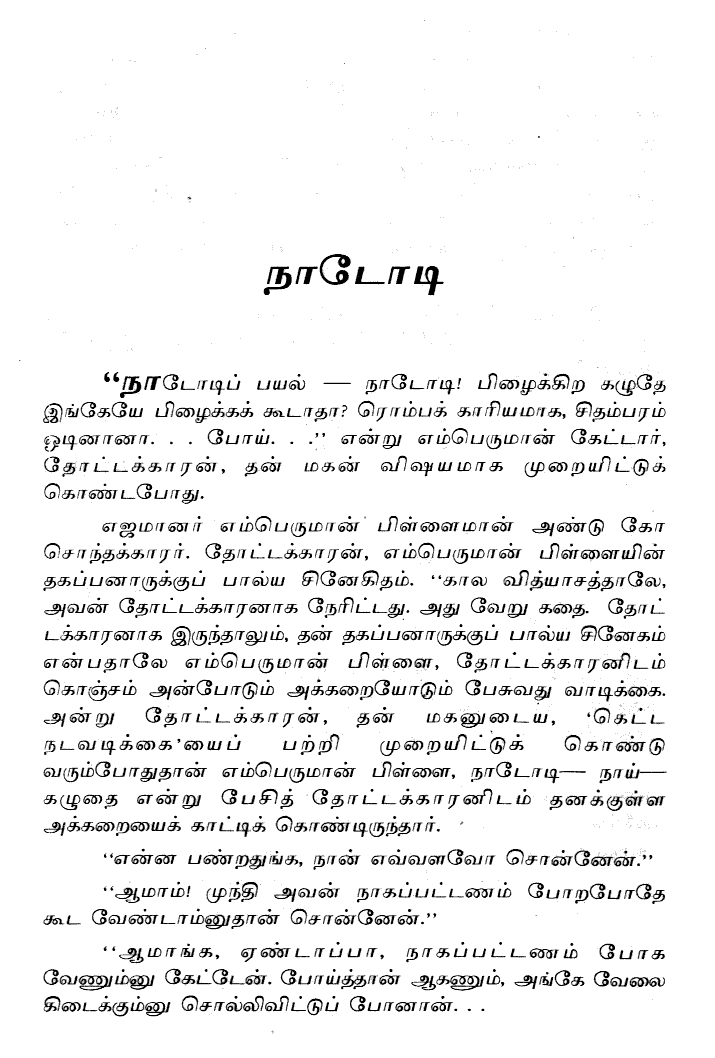 நாடோடி
“நாடோடிப் பயல் — நாடோடி! பிழைக்கிற கழுதே
இங்கேயே பிழைக்கக் கூடாதா? ரொம்பக் காரியமாக, சிதம்பரம்
ஓடினானா. . . போய். . .” என்று எம்பெருமான் கேட்டார்,
தோட்டக்காரன், தன் மகன் விஷயமாக முறையிட்டுக்
கொண்டபோது.
எஜமானர் எம்பெருமான் பிள்ளைமான் அண்டு கோ
சொந்தக்காரர். தோட்டக்காரன், எம்பெருமான் பிள்ளையின்
தகப்பனாருக்குப் பால்ய சினேகிதம். “கால வித்யாசத்தாலே,
அவன் தோட்டக்காரனாக நேரிட்டது. அது வேறு கதை. தோட்
டக்காரனாக இருந்தாலும், தன் தகப்பனாருக்குப் பால்ய சினேகம்
என்பதாலே எம்பெருமான் பிள்ளை, தோட்டக்காரனிடம்
கொஞ்சம் அன்போடும் அக்கறையோடும் பேசுவது வாடிக்கை.
அன்று தோட்டக்காரன், தன் மகனுடைய, ‘கெட்ட
நடவடிக்கை’யைப் பற்றி முறையிட்டுக் கொண்டு
வரும்போதுதான் எம்பெருமான் பிள்ளை, நாடோடி— நாய்—
கழுதை என்று பேசித் தோட்டக்காரனிடம் தனக்குள்ள
அக்கறையைக் காட்டிக் கொண்டிருந்தார்.
“என்ன பண்றதுங்க, நான் எவ்வளவோ சொன்னேன்.”
“ஆமாம்! முந்தி அவன் நாகப்பட்டணம் போறபோதே
கூட வேண்டாம்னுதான் சொன்னேன்.”
“ஆமாங்க, ஏண்டாப்பா, நாகப்பட்டணம் போக
வேணும்னு கேட்டேன். போய்த்தான் ஆகணும், அங்கே வேலை
கிடைக்கும்னு சொல்லிவிட்டுப் போனான். . .